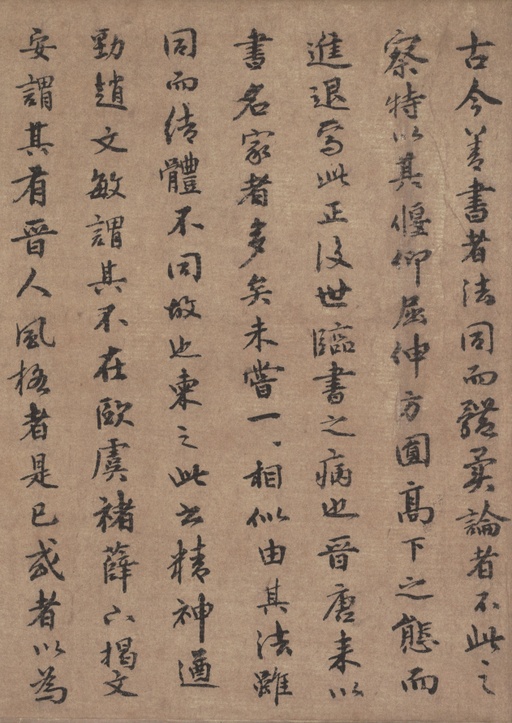 古今善書者法同而體異論者不此之
察特以其偃仰屈伸方圓高下之態而
進退焉此正後世臨書之病也晉唐来以
書名家者多矣未嘗一、相似由其法雖
同而結體不同故也柬之此書精神遒
勁趙文敏謂其不在歐虞禇薛下揭文
安謂其有晉人風格者是已或者以為